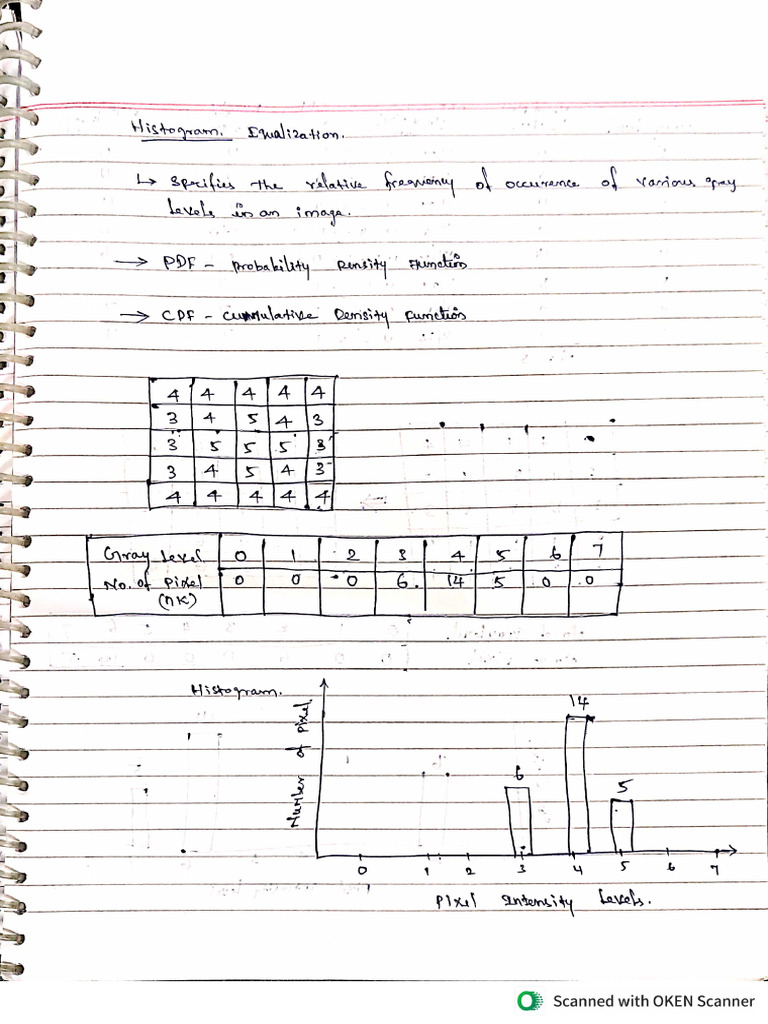 Histogram. Equalization.
↳ Specifies the relative frequency of occurrence of various gray
levels in an image.
→ PDF - Probability Density Function
→ CDF - Cummulative Density Function
4 4 4 4 4
3 4 5 4 3
3 5 5 5 3
3 4 5 4 3
4 4 4 4 4
Gray Level 0 1 2 3 4 5 6 7
No. of Pixel 0 0 0 6 14 5 0 0
(nk)
Histogram.
Number of pixel
14
6
5
0 1 2 3 4 5 6 7
Pixel Intensity Levels.
Scanned with OKEN Scanner